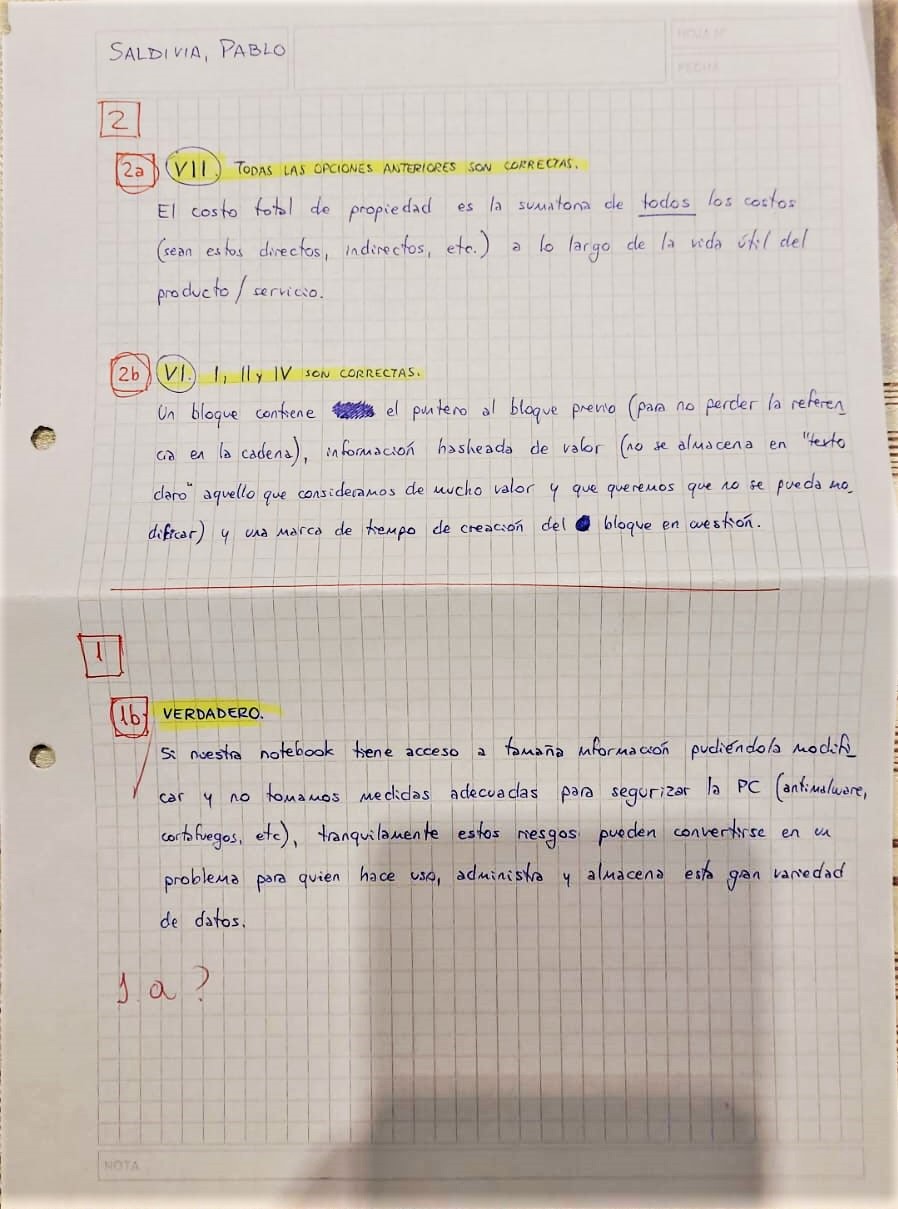 SALDIVIA, PABLO
HOJA Nº
FECHA
2
2a VII. TODAS LAS OPCIONES ANTERIORES SON CORRECTAS.
El costo total de propiedad es la sumatoria de todos los costos
(sean estos directos, indirectos, etc.) a lo largo de la vida útil del
producto/servicio.
2b VI. I, II y IV SON CORRECTAS.
Un bloque contiene el puntero al bloque previo (para no perder la referen
cia en la cadena), información hasheada de valor (no se almacena en "texto
claro" aquello que consideramos de mucho valor y que queremos que no se pueda mo_
dificar) y una marca de tiempo de creación del bloque en cuestión.
1
1b VERDADERO.
Si nuestra notebook tiene acceso a tamaña información pudiéndola modifi_
car y no tomamos medidas adecuadas para segurizar la PC (antimalware,
cortafuegos, etc), tranquilamente estos riesgos pueden convertirse en un
problema para quien hace uso, administra y almacena esta gran variedad
de datos.
1.a ?
NOTA